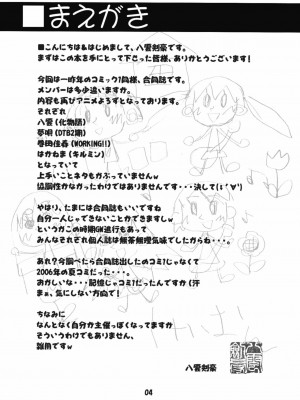 ■まえがき
■こんにちは&はじめまして、八雲剣豪です。
まずはこの本を手にとって下さった皆様、ありがとうございます!
今回は一昨年のコミック1同様、合同誌です。
メンバーは多少違いますが。
内容も再びアニメよろずとなっております。
それぞれ
八雲(化物語)
夢唄(DTB2期)
巻田佳春(WORKING!!)
はかねま(キルミン)
となっていて
上手いことネタもかぶっていませんw
協調性がなかったわけではありません・・・決して(;´∀`)
やはり、たまには合同誌もいいですね
自分一人じゃできないことができますしw
というかこの時期GW進行もあって
みんなそれぞれ個人誌は無茶無理気味でしたからね・・・。
あれ?今調べたら合同誌出したのコミ1じゃなくて
2006年の夏コミだった・・・。
おかしいな・・・記憶じゃコミ1だったんですか(汗
まぁ、気にしない方向で!
ちなみに
なんとなく自分が主催っぽくなってますが
そういうわけでもありません、
雑用ですw
八雲剣豪
04